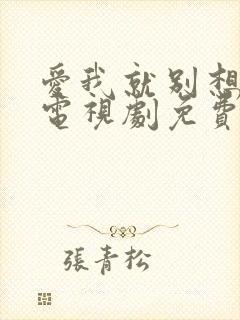 愛我就別想
電視劇免費
張青松